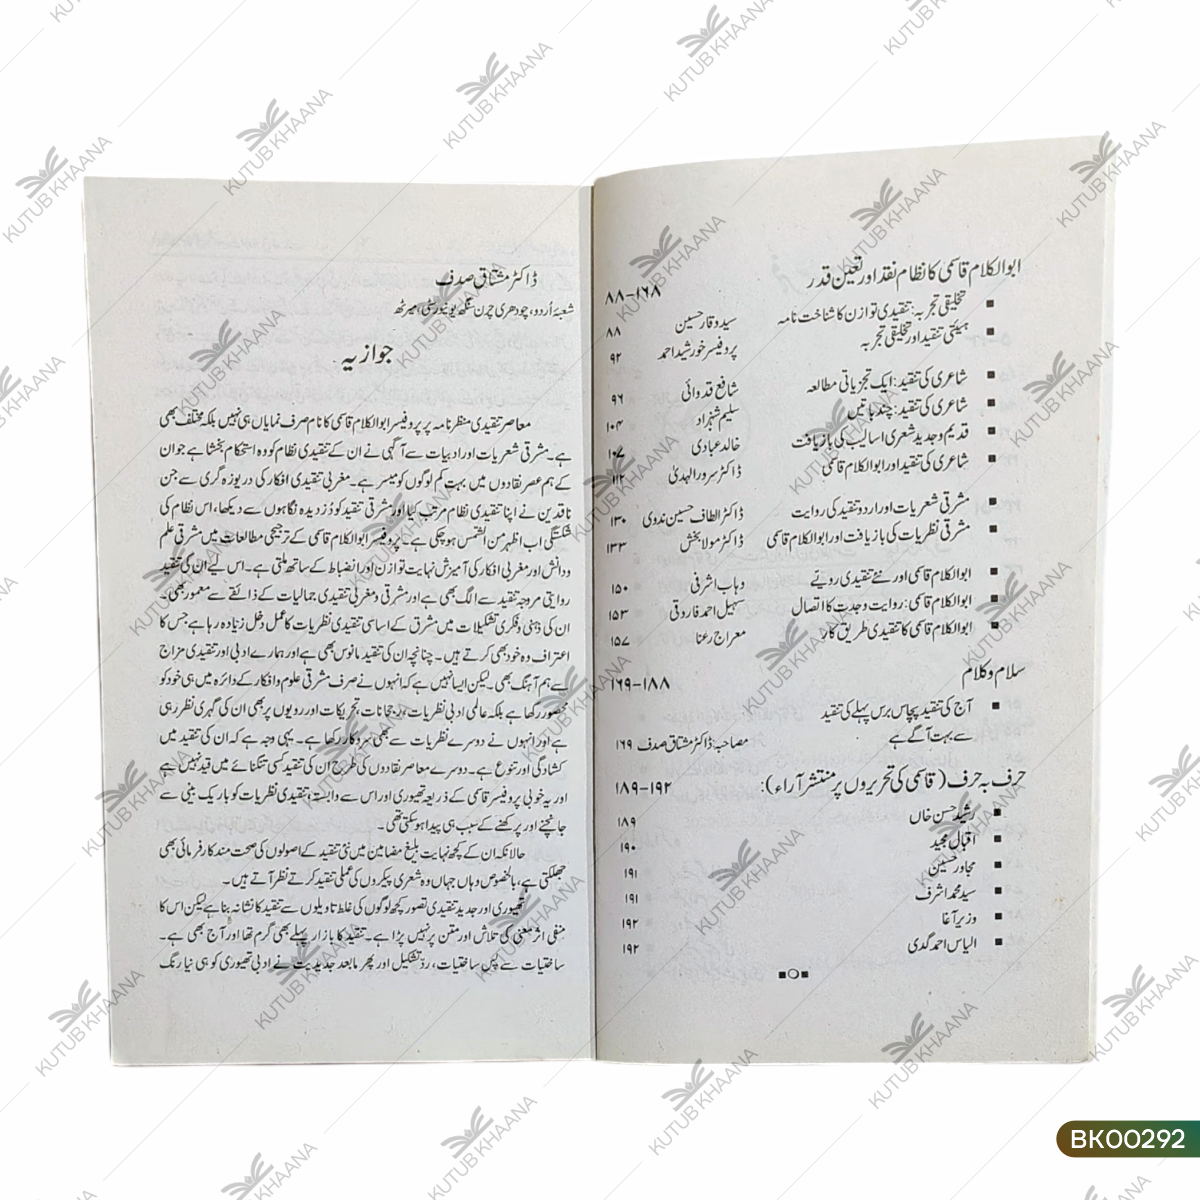 ابوالکلام قاسمی کا نظام نقد اور تعین قدر
۸۸-۱۶۸
تخلیقی تجربہ: تنقیدی توازن کا شناخت نامہ سید وقار حسین ۸۸
ہیئتی تنقید اور تخلیقی تجربہ پروفیسر خورشید احمد ۹۲
شاعری کی تنقید: ایک تجزیاتی مطالعہ شافع قدوائی ۹۶
شاعری کی تنقید: چند باتیں سلیم شہزاد ۱۰۴
قدیم و جدید شعری اسالیب کی بازیافت خالد عبادی ۱۰۷
شاعری کی تنقید اور ابوالکلام قاسمی ڈاکٹر سرور الہدیٰ ۱۱۲
مشرقی شعریات اور اردو تنقید کی روایت ڈاکٹر الطاف حسین ندوی ۱۳۰
مشرقی نظریات کی بازیافت اور ابوالکلام قاسمی ڈاکٹر مولا بخش ۱۳۳
ابوالکلام قاسمی اور نئے تنقیدی رویے وہاب اشرفی ۱۵۰
ابوالکلام قاسمی: روایت وجدت کا اتصال سہیل احمد فاروقی ۱۵۳
ابوالکلام قاسمی کا تنقیدی طریق کار معراج رعنا ۱۵۷
سلام وکلام
۱۶۹-۱۸۸
آج کی تنقید پچاس برس پہلے کی تنقید
سے بہت آگے ہے مصاحبہ: ڈاکٹر مشتاق صدف ۱۶۹
حرف بہ حرف (قاسمی کی تحریروں پر منتشر آراء): ۱۸۹-۱۹۲
رشید حسن خاں ۱۸۹
اقبال مجید ۱۹۰
مجاور حسین ۱۹۱
سید محمد اشرف ۱۹۱
وزیر آغا ۱۹۲
الیاس احمد گدی ۱۹۲
ڈاکٹر مشتاق صدف
شعبۂ اُردو، چودھری چرن سنگھ یونیورسٹی، میرٹھ
جوازیہ
معاصر تنقیدی منظرنامہ پر پروفیسر ابوالکلام قاسمی کا نام صرف نمایاں ہی نہیں بلکہ مختلف بھی
ہے۔ مشرقی شعریات اور ادبیات سے آگہی نے ان کے تنقیدی نظام کو وہ استحکام بخشا ہے جو ان
کے ہم عصر نقادوں میں بہت کم لوگوں کو میسر ہے۔ مغربی تنقیدی افکار کی دریوزہ گری سے جن
ناقدین نے اپنا تنقیدی نظام مرتب کیا اور مشرقی تنقید کو دزدیدہ نگاہوں سے دیکھا، اس نظام کی
شکستگی اب اظہر من الشمس ہو چکی ہے۔ پروفیسر ابوالکلام قاسمی کے ترجیحی مطالعات میں مشرقی علم
ودانش اور مغربی افکار کی آمیزش نہایت توازن اور انضباط کے ساتھ ملتی ہے۔ اس لیے ان کی تنقید
روایتی مروجہ تنقید سے الگ بھی ہے اور مشرقی ومغربی تنقیدی جمالیات کے ذائقے سے معمور بھی۔
ان کی ذہنی وفکری تشکیلات میں مشرق کے اساسی تنقیدی نظریات کا عمل دخل زیادہ رہا ہے جس کا
اعتراف وہ خود بھی کرتے ہیں۔ چنانچہ ان کی تنقید مانوس بھی ہے اور ہمارے ادبی اور تنقیدی مزاج
سے ہم آہنگ بھی۔ لیکن ایسا نہیں ہے کہ انہوں نے صرف مشرقی علوم وافکار کے دائرہ میں ہی خود کو
محصور رکھا ہے بلکہ عالمی ادبی نظریات، رجحانات تحریکات اور رویوں پر بھی ان کی گہری نظر رہی
ہے اور انہوں نے دوسرے نظریات سے بھی سروکار رکھا ہے۔ یہی وجہ ہے کہ ان کی تنقید میں
کشادگی اور تنوع ہے۔ دوسرے معاصر نقادوں کی طرح ان کی تنقید کسی تنکنائے میں قید نہیں ہے
اور یہ خوبی پروفیسر قاسمی کے ذریعہ تھیوری اور اس سے وابستہ تنقیدی نظریات کو باریک بینی سے
جانچنے اور پرکھنے کے سبب ہی پیدا ہو سکتی تھی۔
حالانکہ ان کے کچھ نہایت بلیغ مضامین میں نئی تنقید کے اصولوں کی صحت مند کارفرمائی بھی
جھلکتی ہے، بالخصوص وہاں جہاں وہ شعری پیکروں کی عملی تنقید کرتے نظر آتے ہیں۔
تھیوری اور جدید تنقیدی تصور کچھ لوگوں کی غلط تاویلوں سے تنقید کا نشانہ بنا ہے لیکن اس کا
منفی اثر معنی کی تلاش اور متن پر نہیں پڑا ہے۔ تنقید کا بازار پہلے بھی گرم تھا اور آج بھی ہے۔
ساختیات سے پس ساختیات، ردّ تشکیل اور پھر مابعد جدیدیت نے ادبی تھیوری کو ہی نیا رنگ
KUTUB KHAANA
BK00292